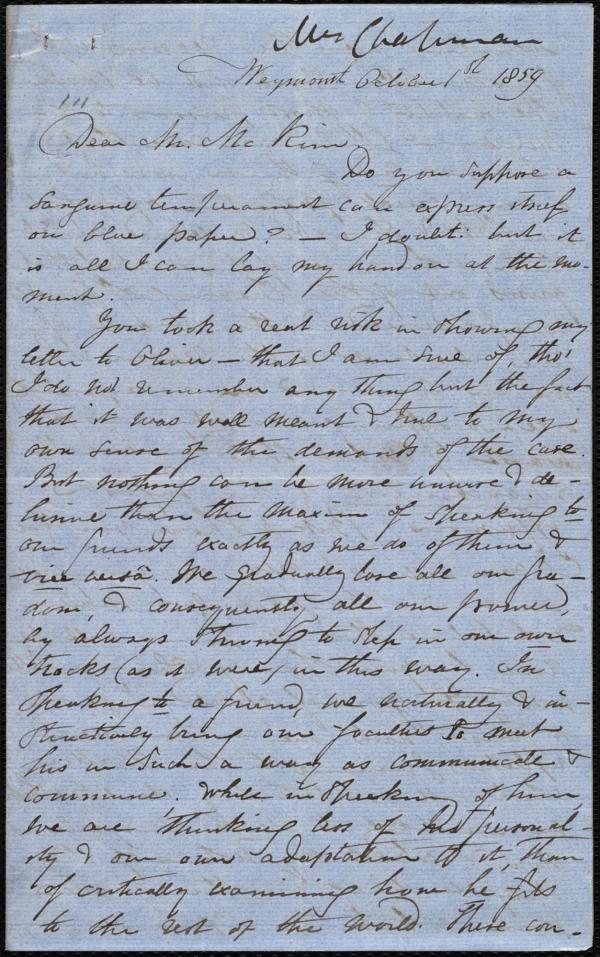 Mrs Chapman
Weymouth October 1st 1859
Dear Mr. Mc Kim.
Do you suppose a
sanguine temperament can express itself
on blue paper? — I doubt: but it
is all I can lay my hand on at the mo-
ment.
You took a real risk in showing my
letter to Oliver — that I am sure of, tho'
I do not remember any thing but the fact
that it was well meant & true to my
own sense of the demands of the case.
But nothing can be more unwise & de-
lusive than the maxim of speaking to
our friends exactly as we do of them &
vice versâ. We gradually lose all our free-
dom, & consequently all our power,
by always striving to step in our own
tracks (as it were) in this way. In
speaking to a friend, we naturally & in-
stinctively bring our faculties to meet
his in such a way as communicate &
commune, while in speaking of him,
we are thinking less of his personal-
ity & our own adaptation to it, than
of critically examining how he fits
to the rest of the world. These con-